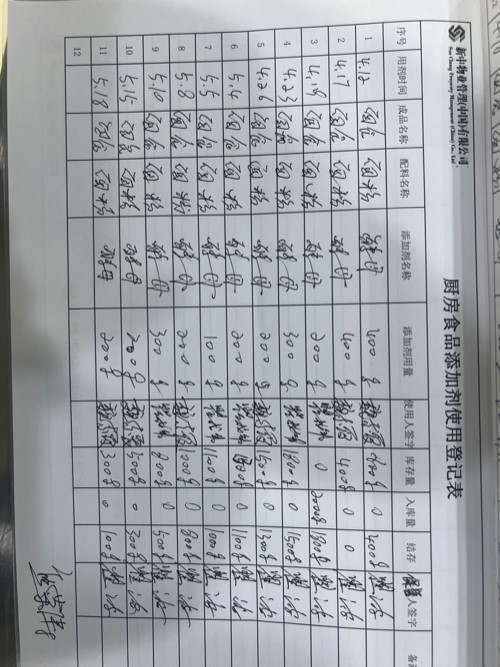 新中物业管理(中国)有限公司
Sun Chung Property Management (China) Co., Ltd
厨房食品添加剂使用登记表
序号 用剂时间 成品名称 配料名称 添加剂名称 添加剂用量 使用人签字 库存量 入库量 结存 人签字
1 4.12 面食 面粉 酵母 400g 800g 0 400g
2 4.17 面食 面粉 酵母 400g 400g 0 0
3 4.19 面食 面粉 酵母 200g 0 2000g 1800g
4 4.23 面食 面粉 酵母 300g 1800g 0 1500g
5 4.26 面食 面粉 酵母 200g 1500g 0 1300g
6 5.4 面食 面粉 酵母 200g 1300g 0 1100g
7 5.5 面食 面粉 酵母 100g 1100g 0 1000g
8 5.8 面食 面粉 酵母 200g 1000g 0 800g
9 5.10 面食 面粉 酵母 300g 800g 0 500g
10 5.15 面食 面粉 酵母 200g 500g 0 300g
11 5.18 面食 面粉 酵母 200g 300g 0 100g
12